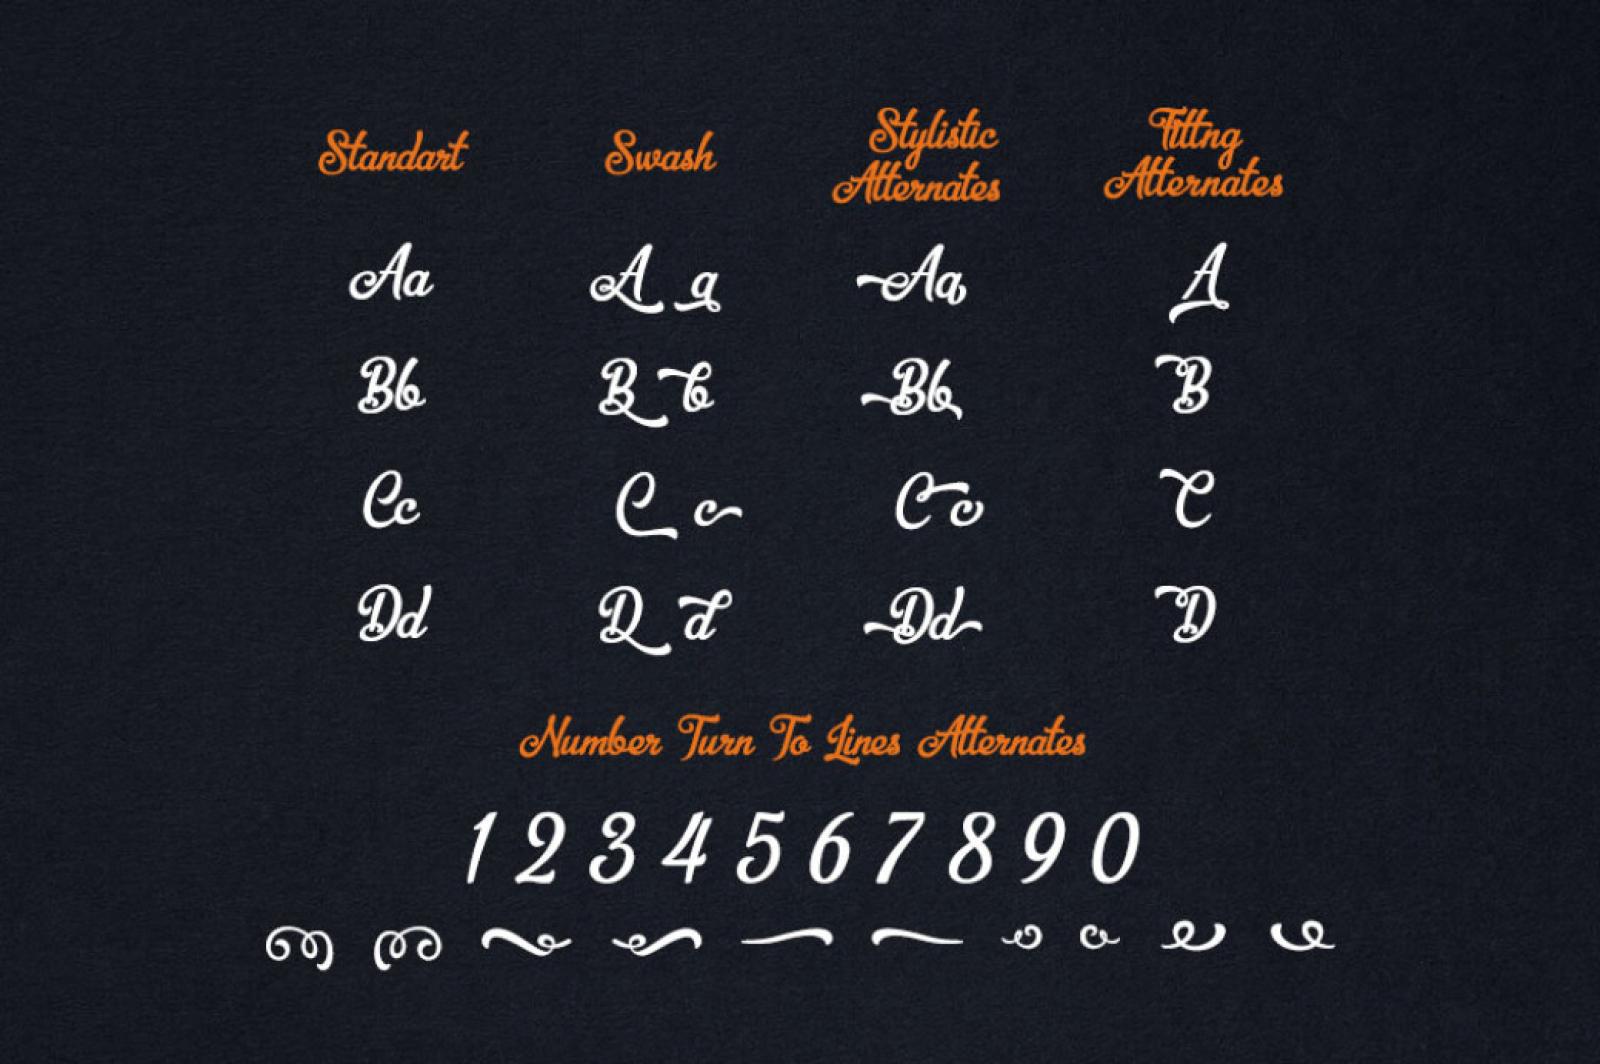 Standart Swash Stylistic Alternates Tittng Alternates
Aa A a Aa A
Bb B b Bb B
Cc C c Cc C
Dd D d Dd D
Number Turn To Lines Alternates
1 2 3 4 5 6 7 8 9 0